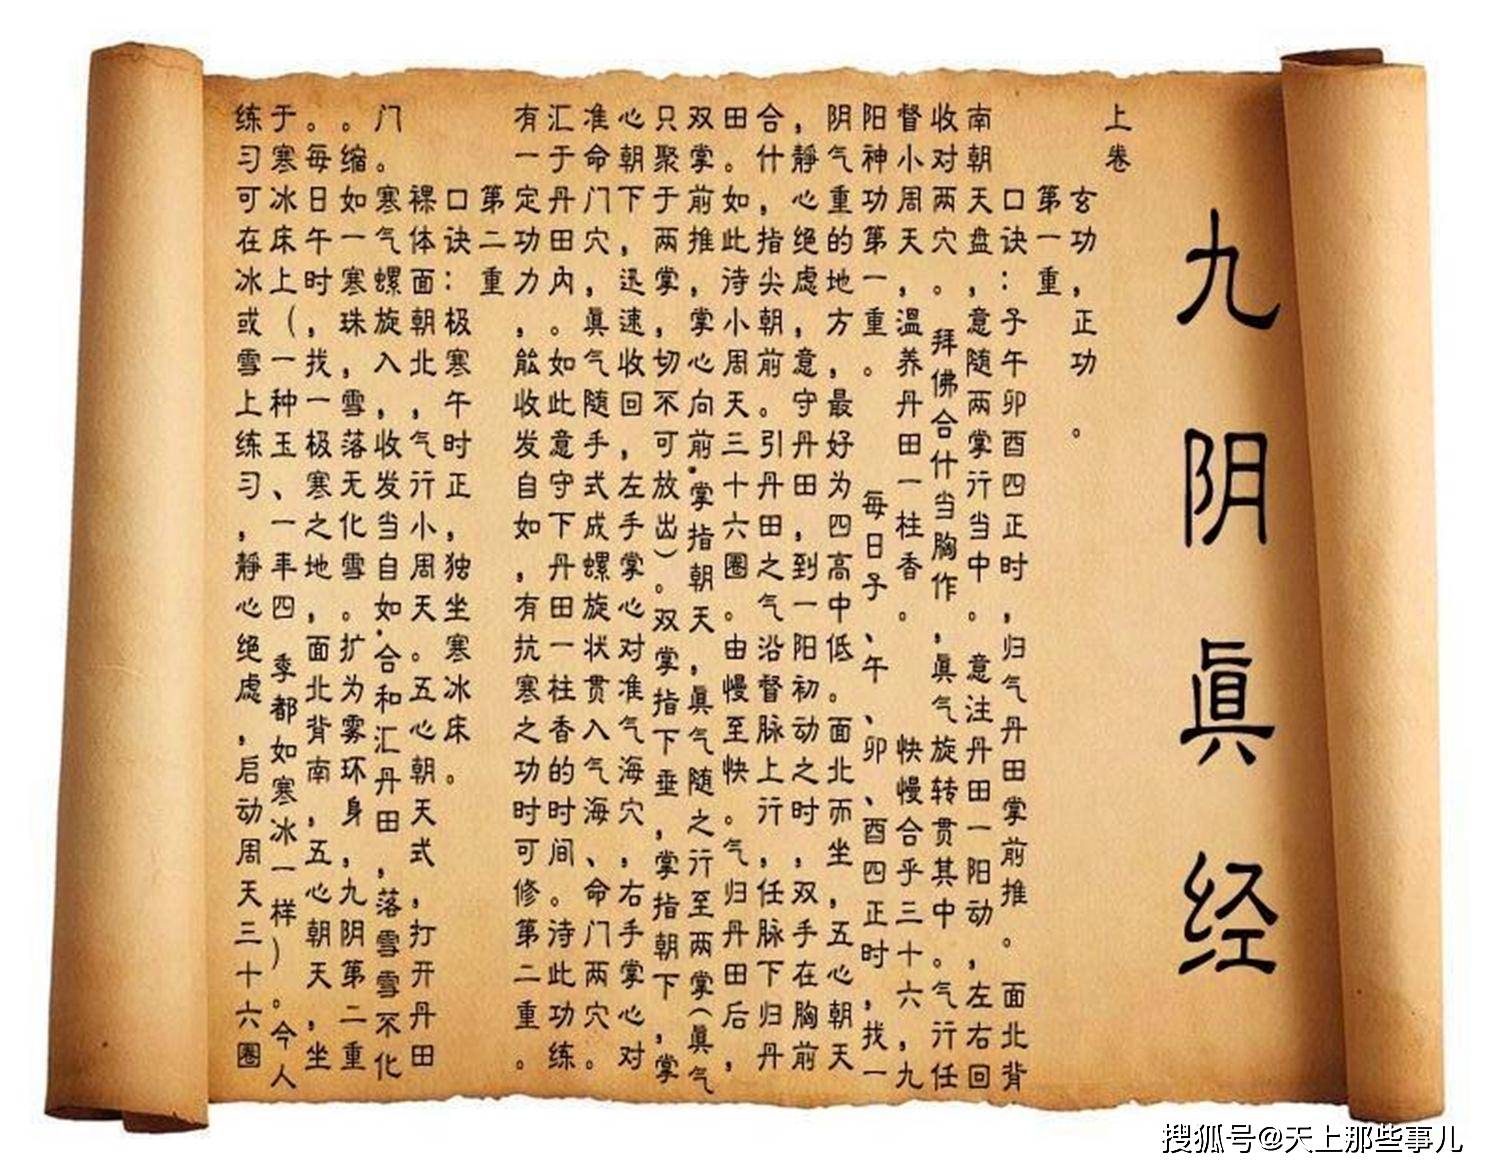 九阴眞经
上卷
玄功，正功。
第一重
口诀：子午卯酉四正时，归气丹田掌前推。面北背
南朝天盘，意随两掌行当中。意注丹田一阳动，左右回
收对两穴。拜佛合什当胸作，眞气旋转贯其中。气行任
督小周天，温养丹田一柱香。快慢合乎三十六，九
阳神功第一重。每日子、午、卯、酉四正时，找一
阴气重的地方，最好为四高中低。面北而坐，五心朝天
，静心绝虑，意守丹田，到一阳初动之时，双手在胸前
合什，指尖朝前。引丹田之气沿督脉上行，任脉下归丹
田。如此待小周天三十六圈。由慢至快。气归丹田后，
双掌前推，掌心向前.掌指朝天，眞气随之行至两掌(眞气
只聚于两掌，切不可放出)。双掌指下垂，掌指朝下，掌
心朝下，迅速收回，左手掌心对准气海穴，右手掌心对
准命门穴，眞气随手式成螺旋状贯入气海、命门两穴。
汇于丹田内。如此意守下丹田一柱香的时间。待此功练
有一定功力，能收发自如，有抗寒之功时可修第二重。
第二重
口诀：极寒午时正，独坐寒冰床。
裸体面朝北，气行小周天。五心朝天式，打开丹田
门。寒气螺旋入，收发当自如.合和汇丹田，落雪雪不化
。缩如一寒珠，雪落无化雪。扩为雾环身，九阴第二重
。每日午时，找一极寒之地，面北背南，五心朝天，坐
于寒冰床上(一种玉、一年四季都如寒冰一样)。今人
练习可在冰或雪上练习，静心绝虑，启动周天三十六圈
搜狐号@天上那些事儿